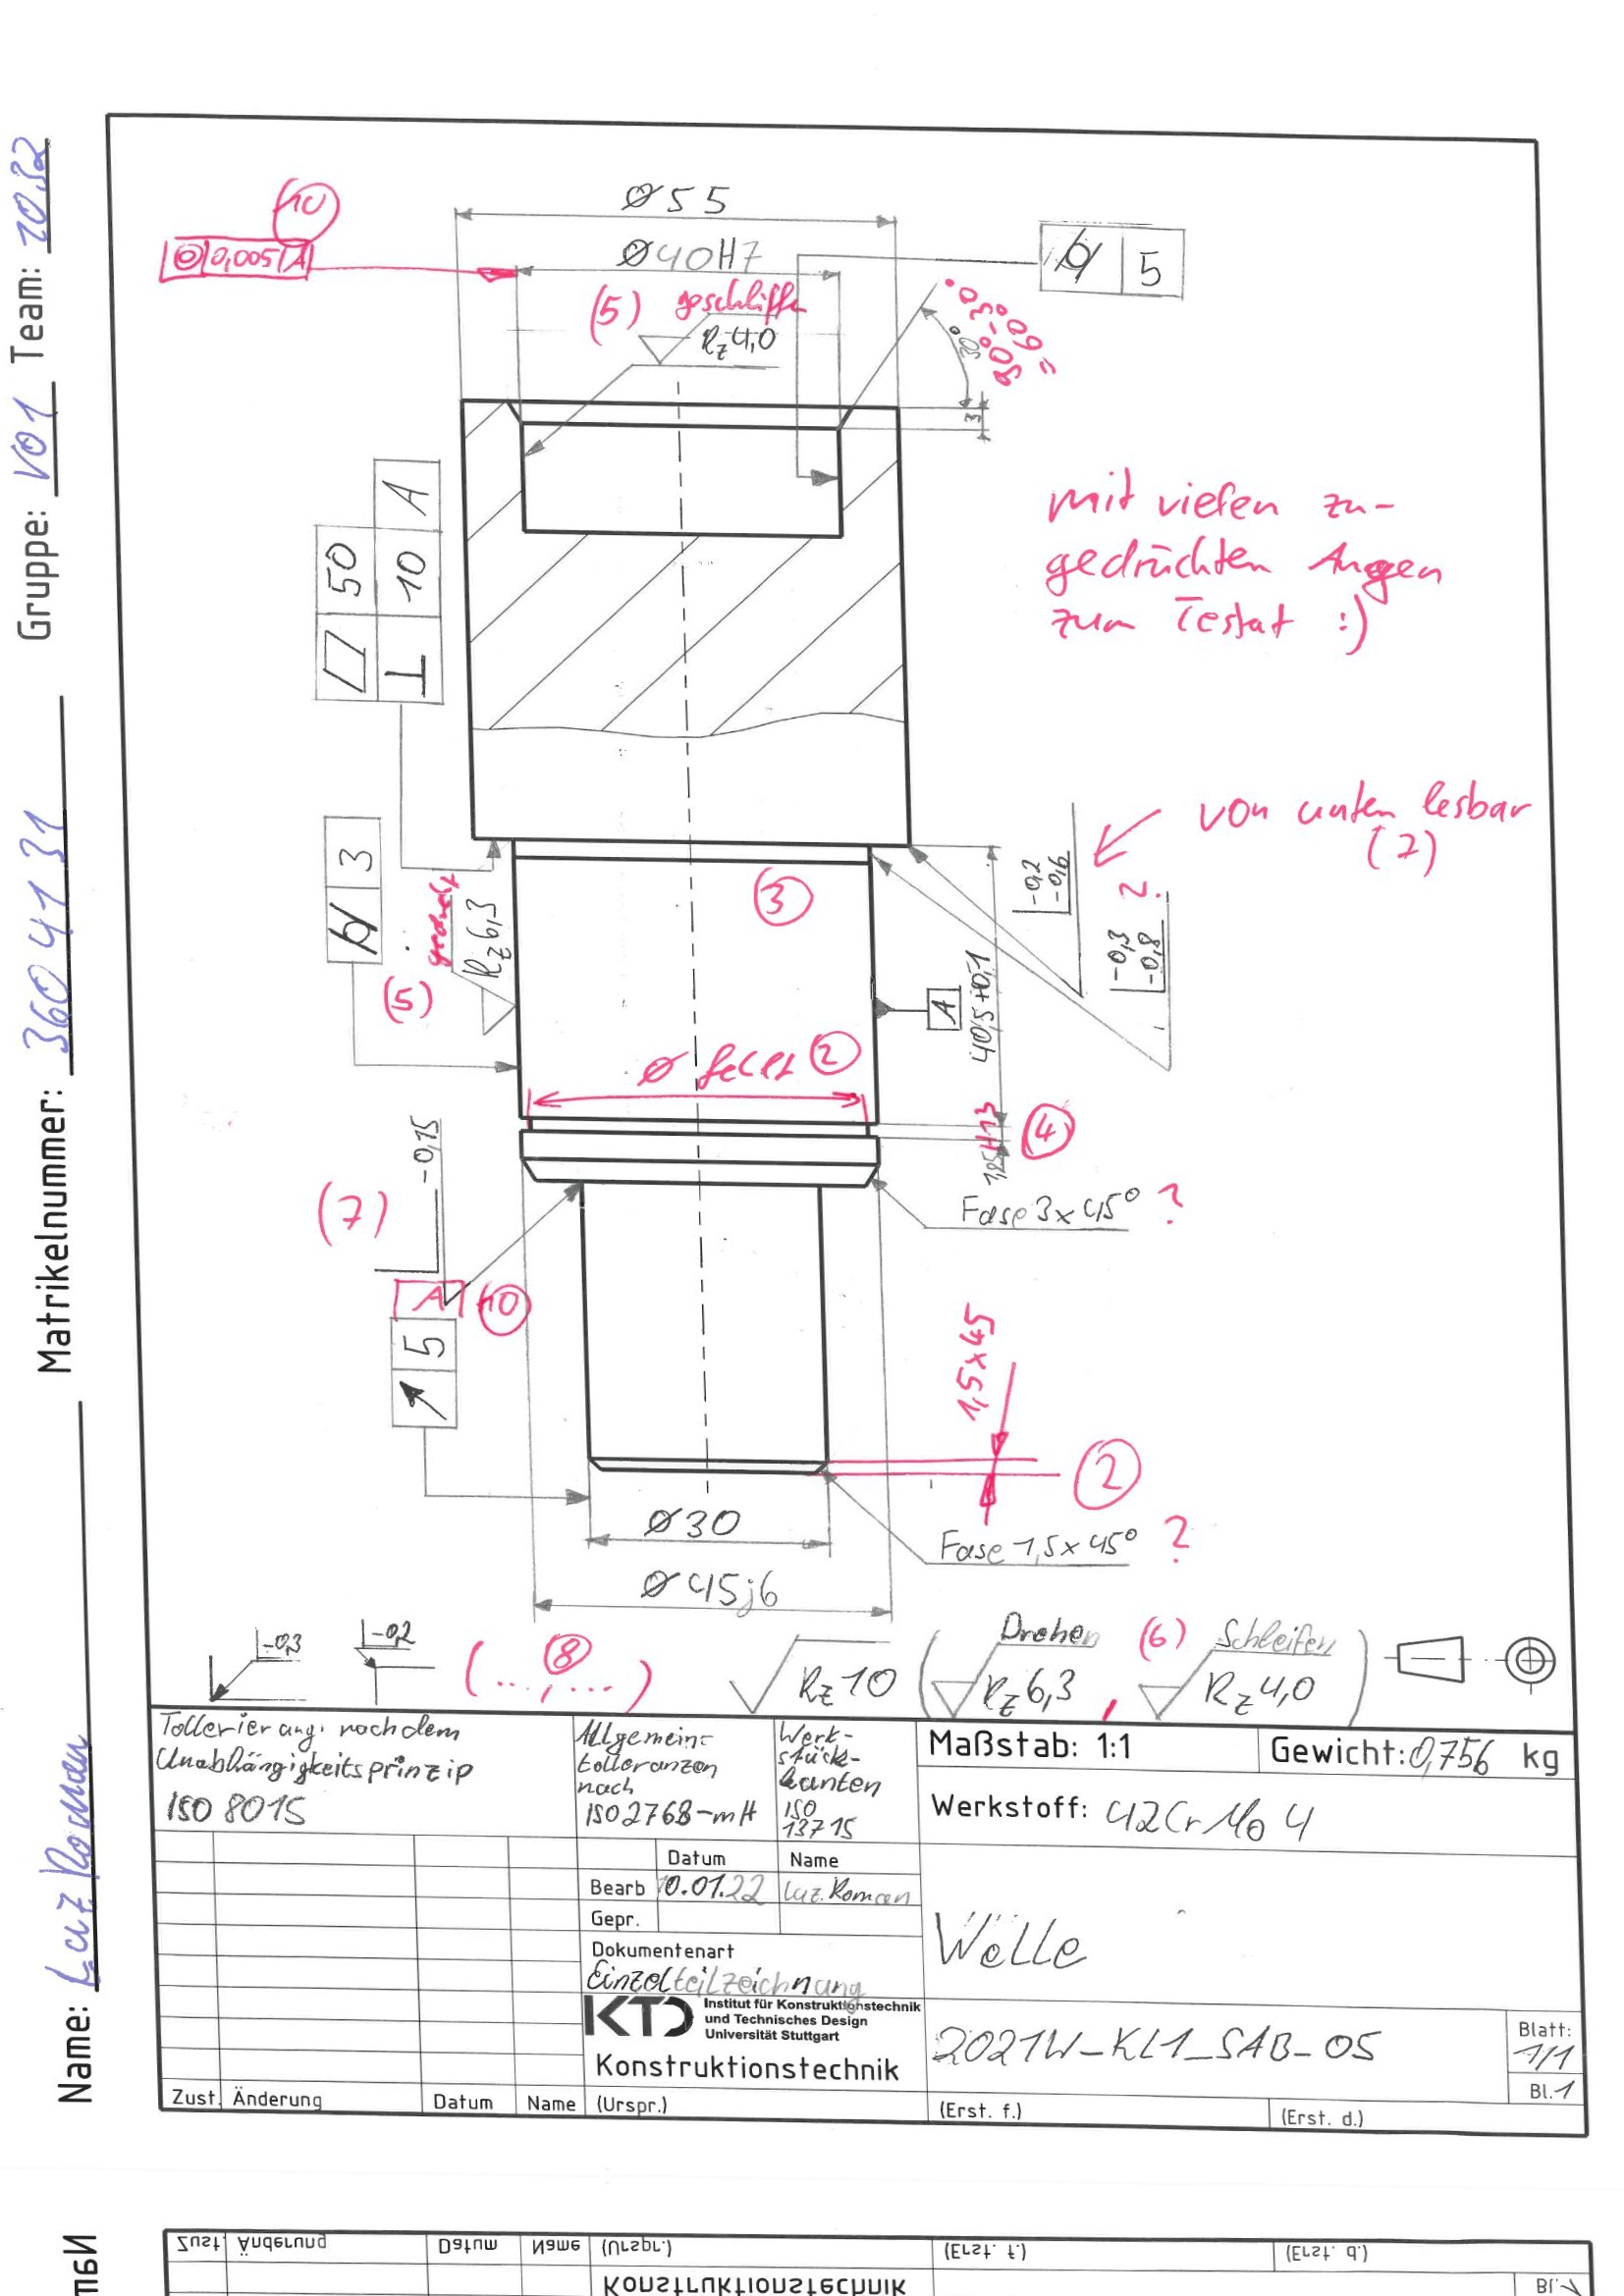 Name: Luz Roman Matrikelnummer: 3604131 Gruppe: V01 Team:
Ø55
10
0,005 A
Ø40H7
5
(5) geschliffen
Rz4,0
30°
90°-30°
=60°
3
A
50
10
mit vielen zu-
gedrückten Augen
zum Testat :)
von unten lesbar
(7)
-0,2
-0,6
?
-0,3
-0,8
3
③
gedreht
Rz6,3
(5)
A
40,5+0,1
Ø fehlt ②
1,85H13
④
-0,15
(7)
Fase 3x45° ?
A 10
5
1,5x45
②
Ø30
Fase 1,5x45° ?
Ø45j6
-0,3
-0,2
(..., ⑧ ...)
Rz10 ( Drehen Rz6,3 , (6) Schleifen Rz4,0 )
Tollerierung nach dem
Unabhängigkeitsprinzip
ISO 8015
Allgemein-
tolleranzen
nach
ISO2768-mH
Werk-
stück-
kanten
ISO
13715
Maßstab: 1:1
Gewicht: 0,756 kg
Werkstoff: 42CrMo4
Datum Name
Bearb 10.01.22 Luz.Roman
Gepr.
Dokumentenart
Einzelteilzeichnung
Welle
KTD Institut für Konstruktionstechnik
und Technisches Design
Universität Stuttgart
Konstruktionstechnik
2021W_KL1_SAB-05
Blatt:
1/1
Bl.1
Zust. Änderung Datum Name (Urspr.) (Erst. f.) (Erst. d.)
Zust. Änderung Datum Name (Urspr.) (Erst. f.) (Erst. d.)
Konstruktionstechnik
Bl.1